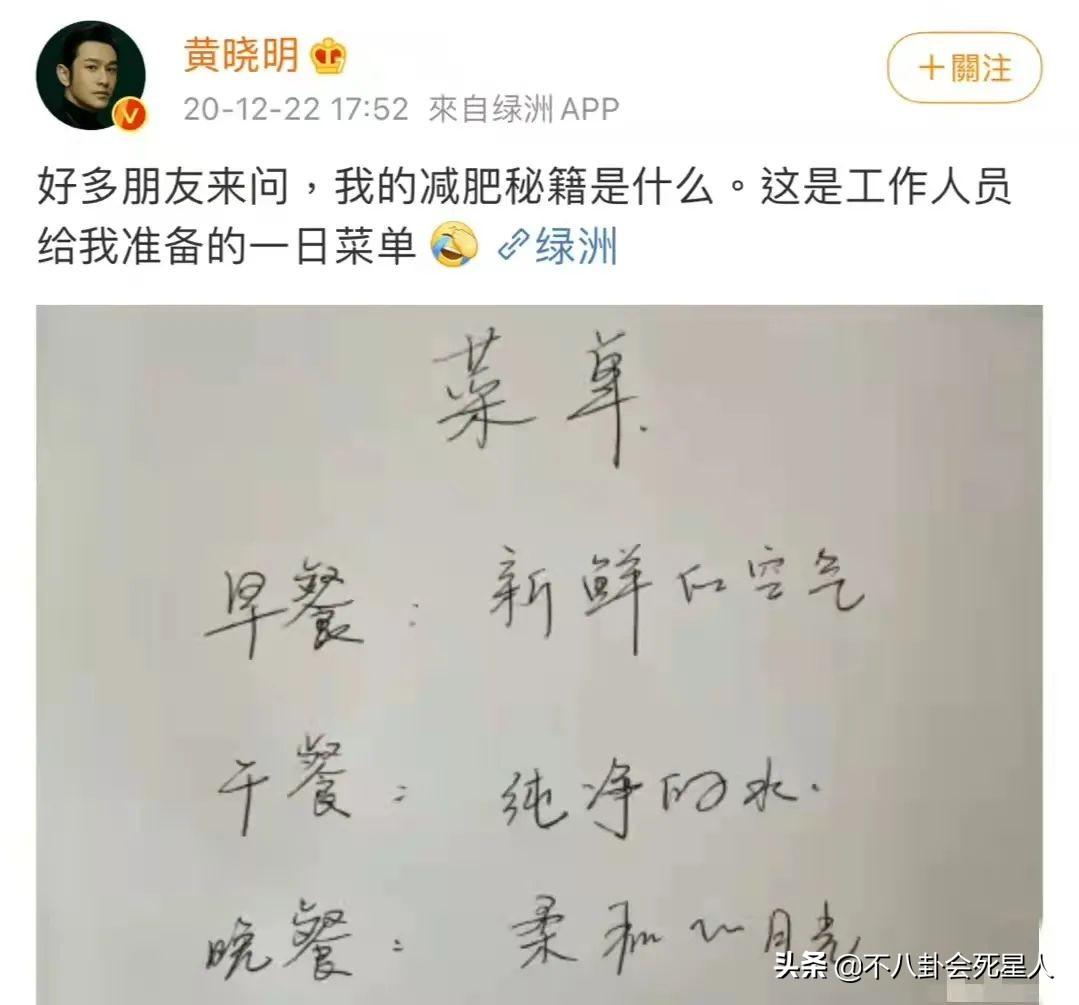 黄晓明
＋關注
20-12-22 17:52 來自绿洲APP
好多朋友来问，我的减肥秘籍是什么。这是工作人员
给我准备的一日菜单 绿洲
菜单.
早餐：新鲜的空气
午餐：纯净的水.
晚餐：柔和的月光
头条 @不八卦会死星人